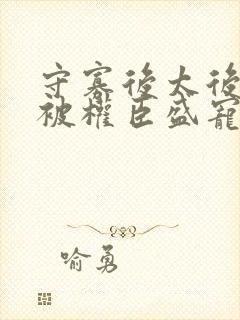 守寡後太後
被權臣盛寵
喻勇